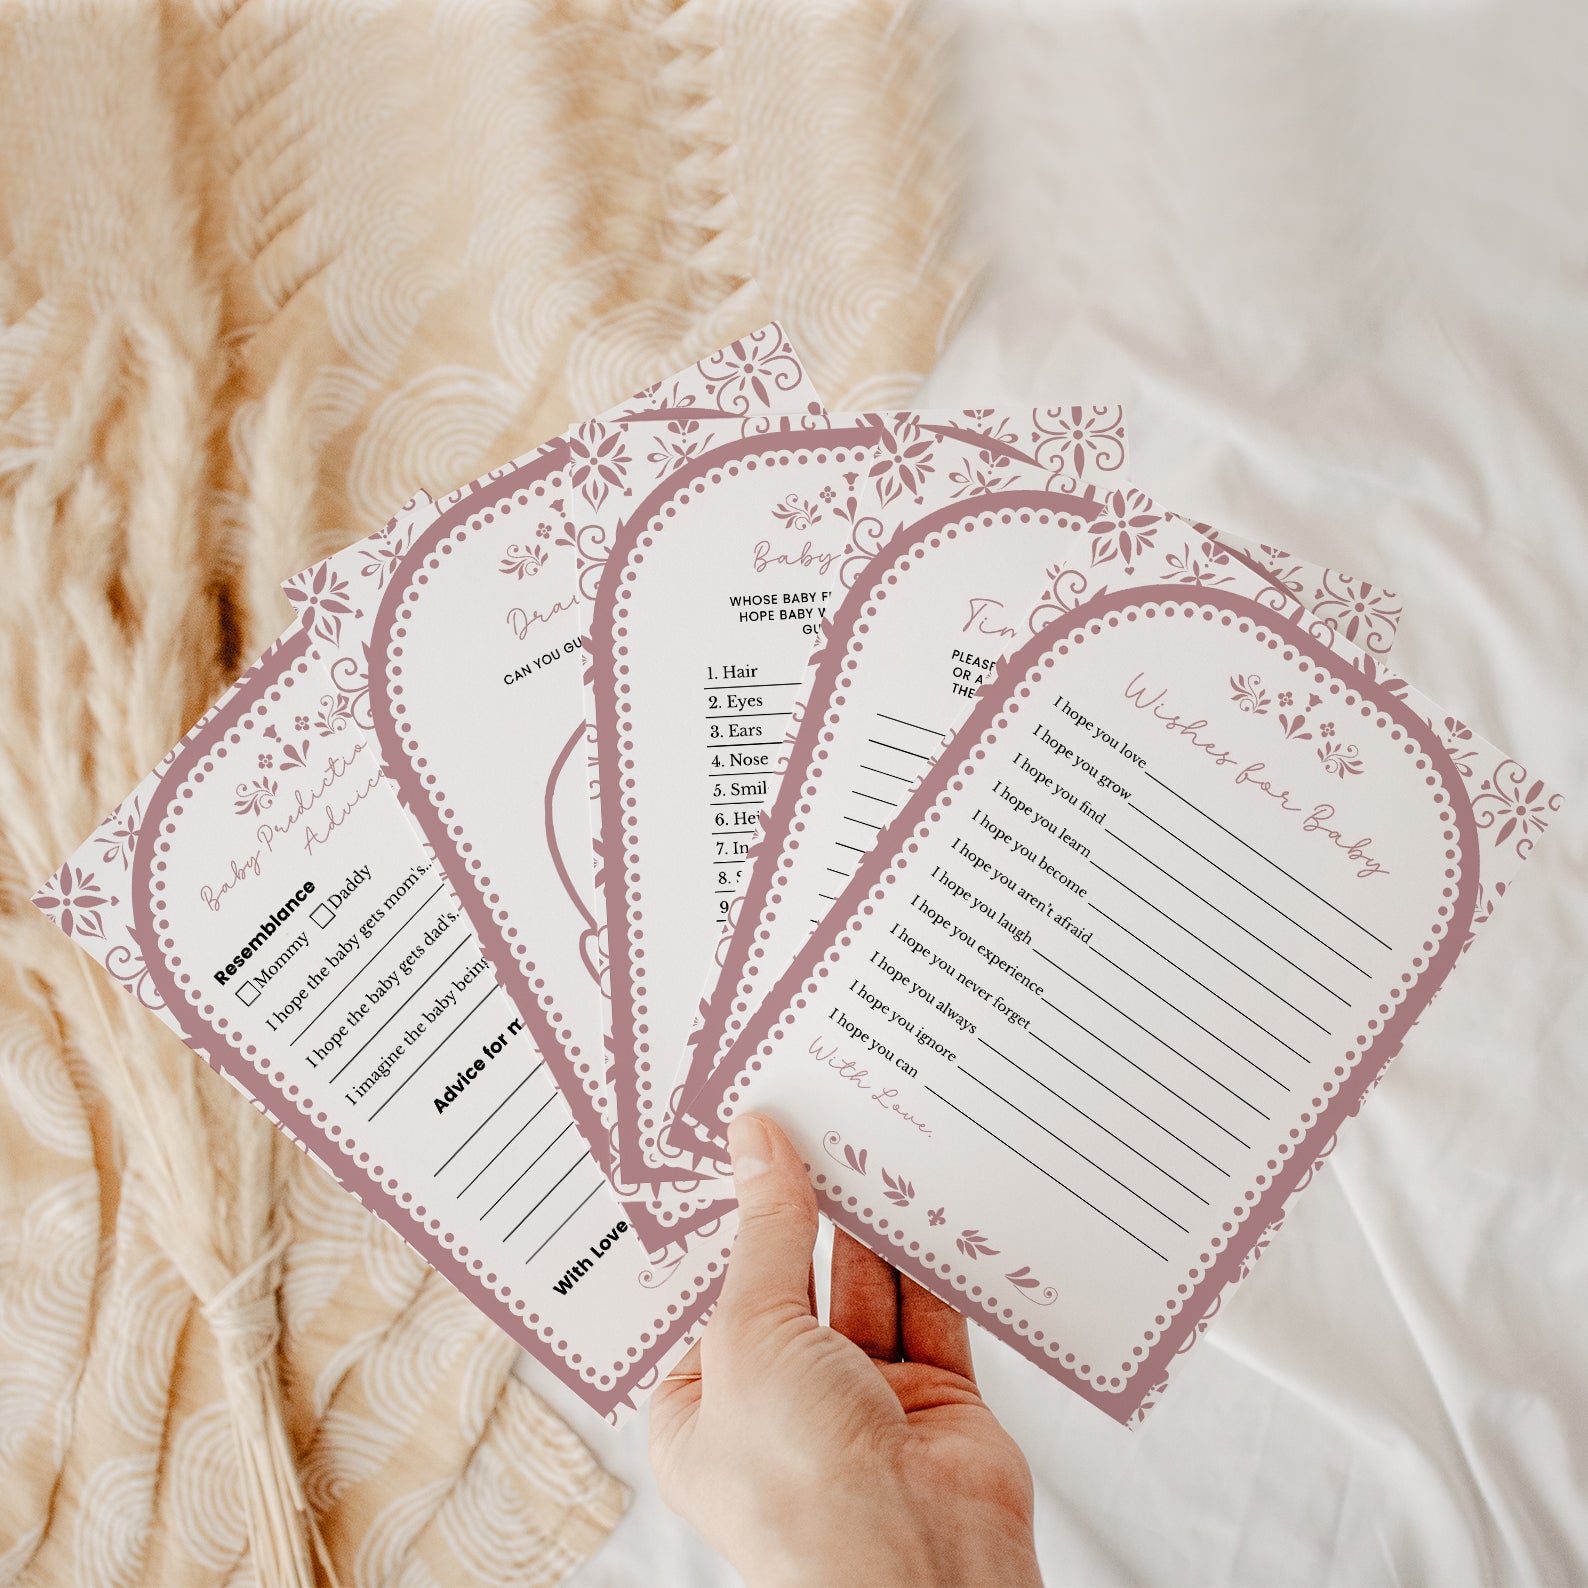 Baby Predictio
Advice
Resemblance
Mommy Daddy
I hope the baby gets mom's...
I hope the baby gets dad's...
I imagine the baby being
Advice for m
With Love
CAN YOU GU
Baby
WHOSE BABY F
HOPE BABY W
GU
1. Hair
2. Eyes
3. Ears
4. Nose
5. Smil
6. Hei
7. In
8. S
9
PLEASE
OR A
THE
Wishes for Baby
I hope you love
I hope you grow
I hope you find
I hope you learn
I hope you become
I hope you aren't afraid
I hope you laugh
I hope you experience
I hope you never forget
I hope you always
I hope you ignore
I hope you can
With Love.